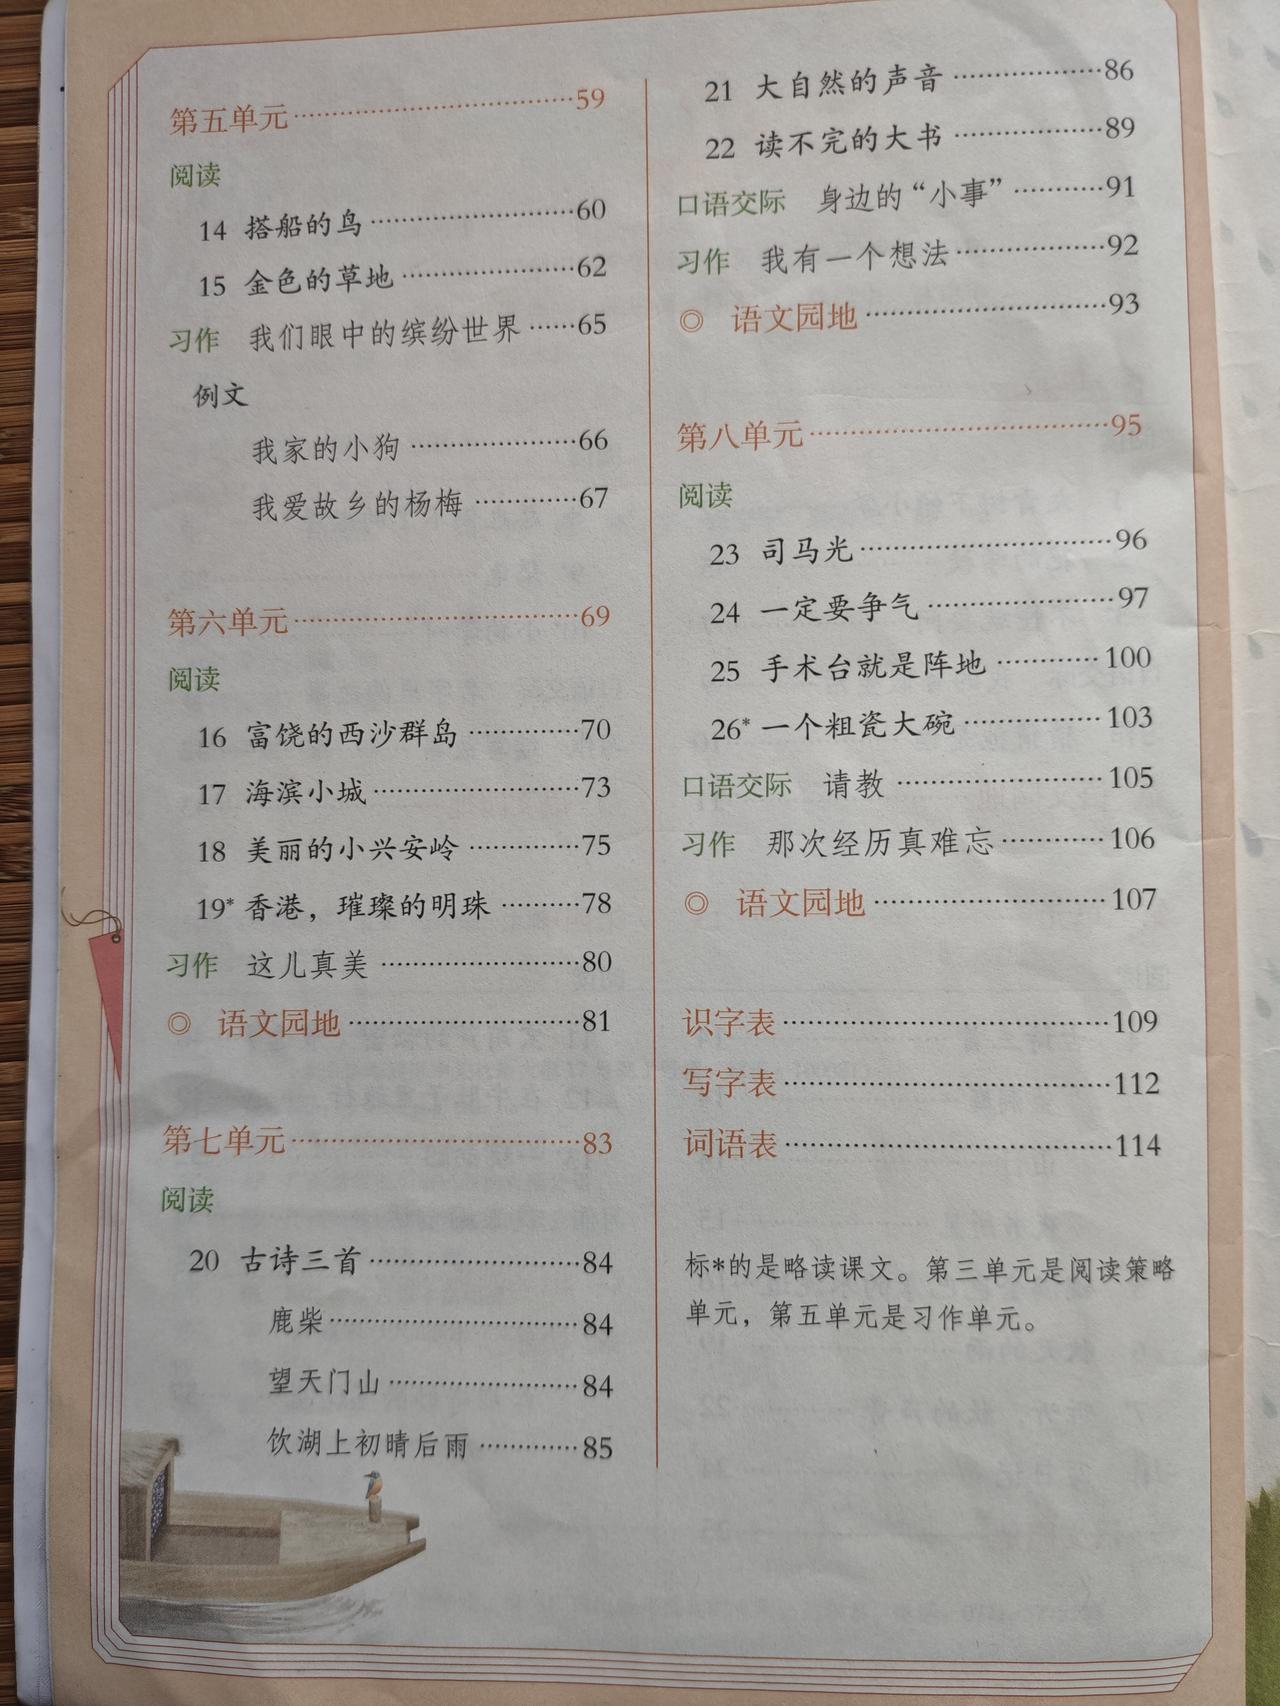 第五单元……………………59
阅读
14 搭船的鸟……………………60
15 金色的草地……………………62
习作 我们眼中的缤纷世界……65
例文
我家的小狗……………………66
我爱故乡的杨梅……………67
第六单元……………………69
阅读
16 富饶的西沙群岛……………70
17 海滨小城……………………73
18 美丽的小兴安岭……………75
19* 香港，璀璨的明珠…………78
习作 这儿真美……………………80
◎ 语文园地……………………81
第七单元……………………83
阅读
20 古诗三首……………………84
鹿柴……………………84
望天门山……………………84
饮湖上初晴后雨…………85
21 大自然的声音………………86
22 读不完的大书………………89
口语交际 身边的“小事”…………91
习作 我有一个想法………………92
◎ 语文园地……………………93
第八单元……………………95
阅读
23 司马光……………………96
24 一定要争气………………97
25 手术台就是阵地…………100
26* 一个粗瓷大碗……………103
口语交际 请教……………………105
习作 那次经历真难忘…………106
◎ 语文园地……………………107
识字表……………………109
写字表……………………112
词语表……………………114
标*的是略读课文。第三单元是阅读策略
单元，第五单元是习作单元。